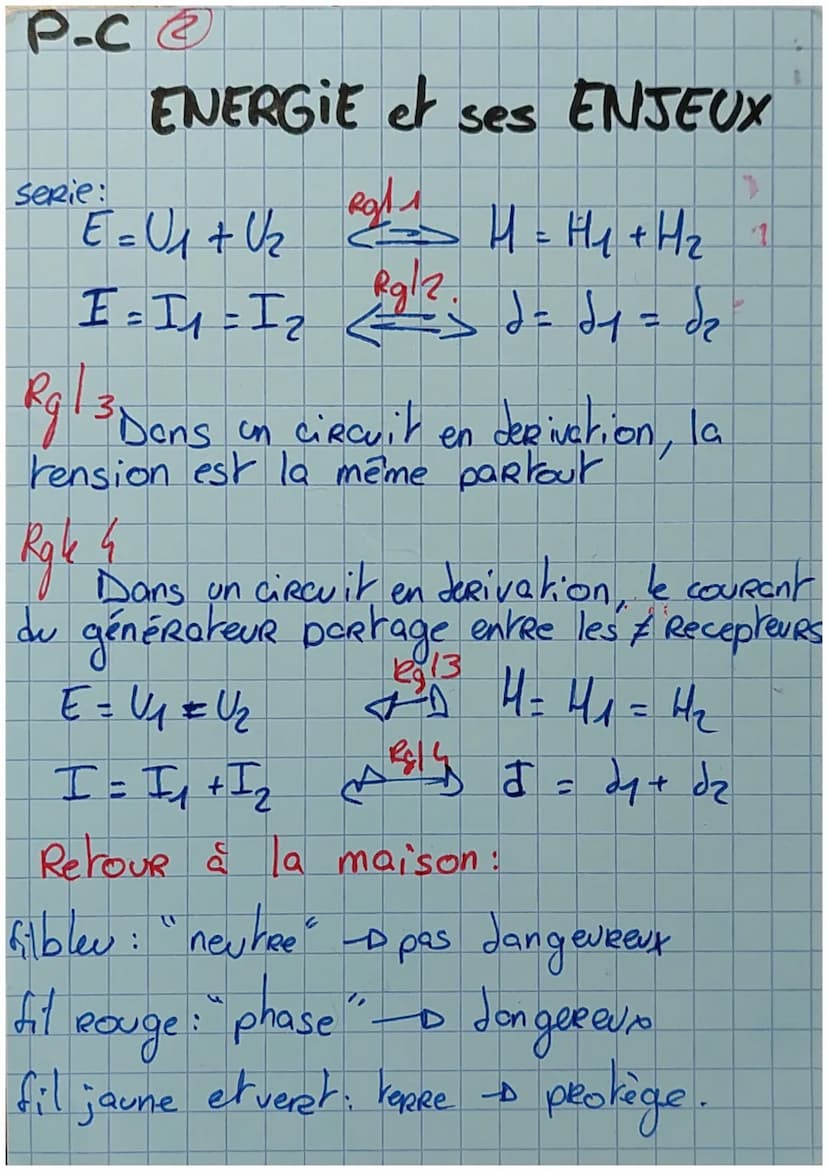 P-C ②
ENERGiE et ses ENJEUX
serie:
E = U1 + U2 Rgl 1 ⟺ H = H1 + H2
I = I1 = I2 Rgl 2. ⟺ d = d1 = d2
Rgl 3
Dans un circuit en derivation, la
tension est la même partout
Rgle 4
Dans un circuit en derivation, le courant
du générateur partage entre les ≠ recepteurs
E = U1 = U2 Rgl 3 ⟺ H = H1 = H2
I = I1 + I2 Rgl 4 ⟺ d = d1 + d2
Retour à la maison :
fil bleu : "neutre" → pas dangeureux
fil rouge : "phase" → dangereux
fil jaune et veret : terre → protège.